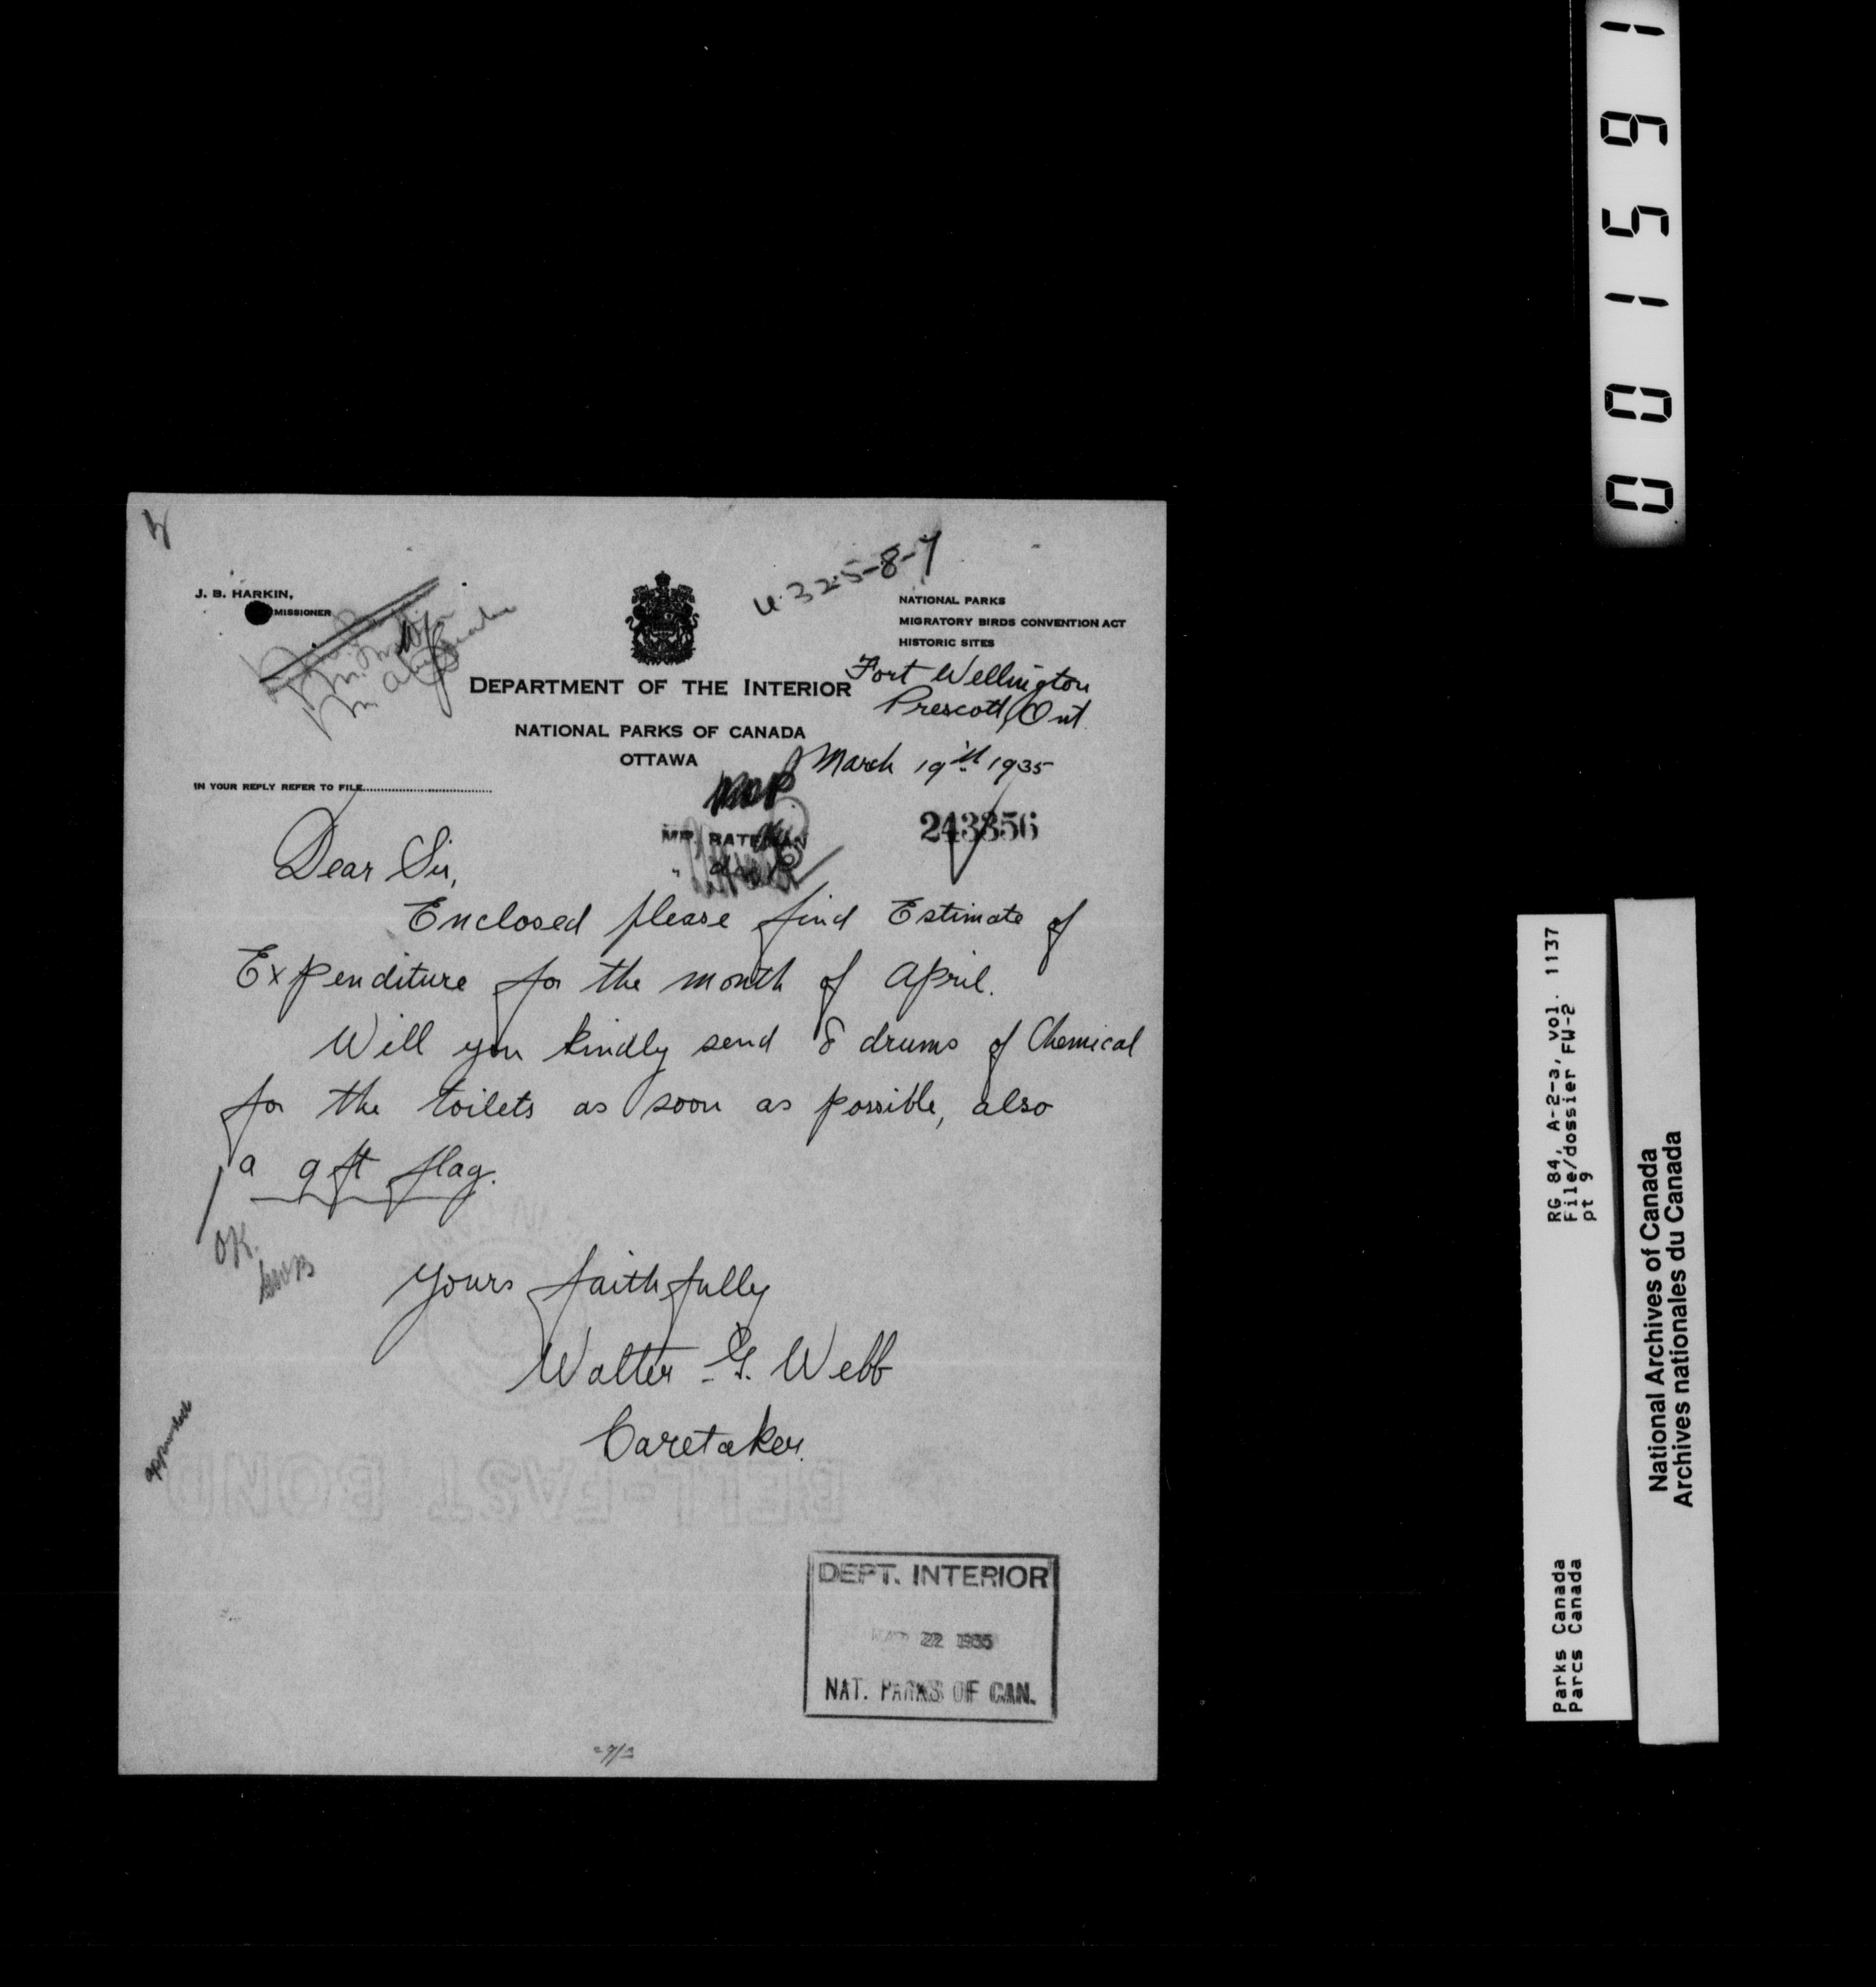 J. B. HARKIN,
MISSIONER
U.325-8-7
NATIONAL PARKS
MIGRATORY BIRDS CONVENTION ACT
HISTORIC SITES
DEPARTMENT OF THE INTERIOR
NATIONAL PARKS OF CANADA
OTTAWA
Fort Wellington
Prescott, Ont.
March 19th 1935
IN YOUR REPLY REFER TO FILE
MR. BATEMAN
243856
Dear Sir,
Enclosed please find Estimate of
Expenditure for the month of April.
Will you kindly send 8 drums of Chemical
for the toilets as soon as possible, also
a 9 ft flag.
OK.
Yours faithfully
Walter G. Webb
Caretaker.
approved
BELL-FAST BOND
DEPT. INTERIOR
MAR 22 1935
NAT. PARKS OF CAN.
001591
RG 84, A-2-a, vol. 1137
File/dossier FW-2
pt 9
Parks Canada
Parcs Canada
National Archives of Canada
Archives nationales du Canada